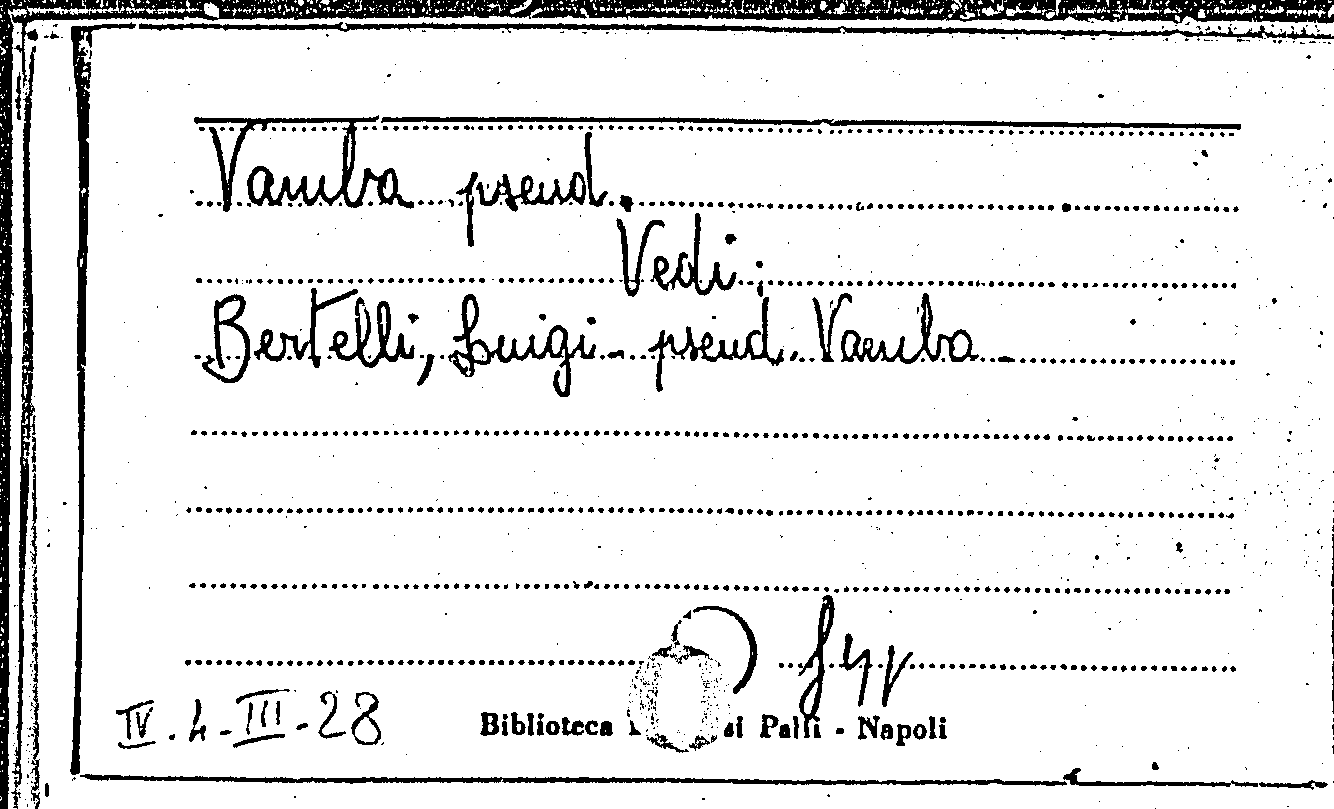 Vamba pseud.
Vedi:
Bertelli, Luigi - pseud. Vamba -
IV. 4 - III - 28
Biblioteca di Palli - Napoli